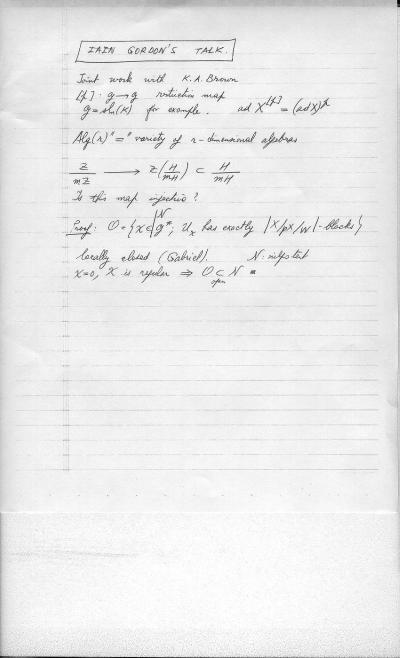 IAIN GORDON'S TALK.
Joint work with K.A. Brown
[p] : g → g restriction map
g = sl(K) for example. ad X^[p] = (ad X)^p
Alg(r) "=" variety of r-dimensional algebras
Z/mZ → Z(H/mH) ⊂ H/mH
Is this map injective?
Proof: O = {χ ∈ N g*; U_χ has exactly |X/pX/W|-blocks}
locally closed (Gabriel). N: nilpotent
χ=0, χ is regular ⇒ O ⊂ N
open